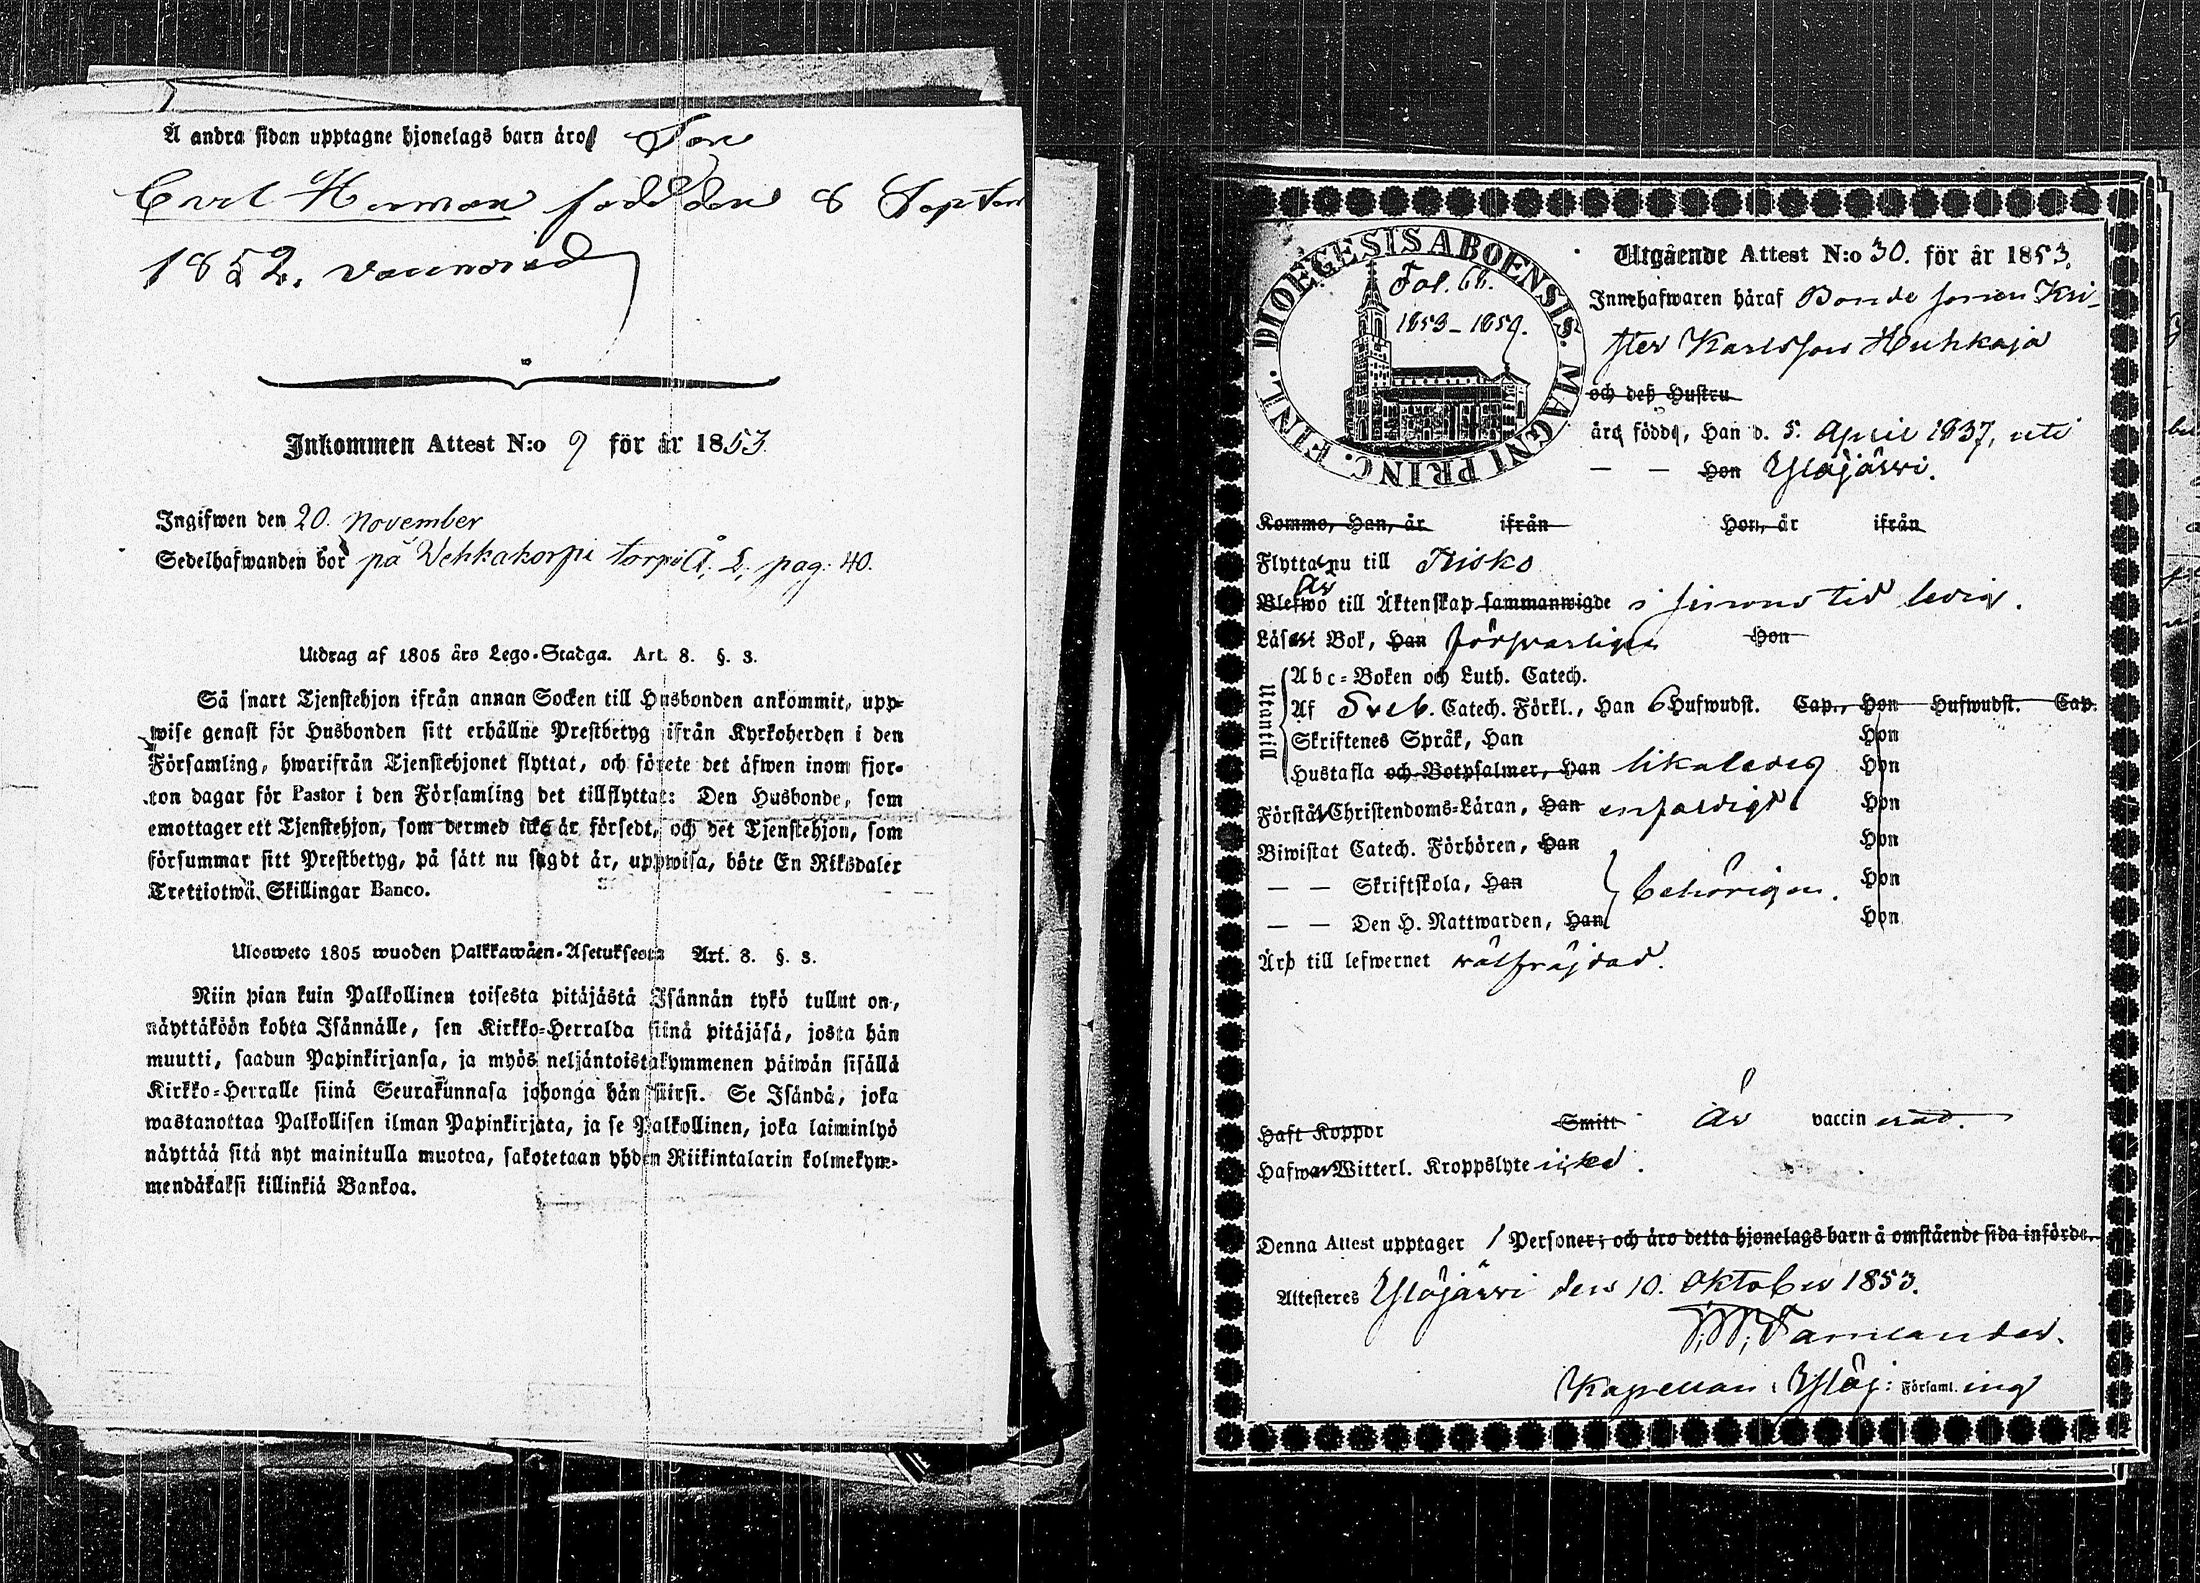 Å andra sidan upptagne hjonelags barn äro Son
Carl Herman född den 8 Septem
1852. vaccinerad
Inkommen Attest N:o 9 för år 1853
Ingifwen den 20. November
Sedelhafwanden bor på Wehkakorpi torp i Å. L. pag: 40.
Utdrag af 1805 års Lego-Stadga. Art. 8. §. 3.
Så snart Tjenstehjon ifrån annan Socken till Husbonden ankommit, upp-
wise genast för Husbonden sitt erhållne Prestbetyg ifrån Kyrkoherden i den
Församling, hwarifrån Tjenstehjonet flyttat, och förete det äfwen inom fjor-
ton dagar för Pastor i den Församling det tillflyttat: Den Husbonde, som
emottager ett Tjenstehjon, som dermed icke är försedt, och det Tjenstehjon, som
försummar sitt Prestbetyg, på sätt nu sagdt är, uppwisa, böte En Riksdaler
Trettiotwå Skillingar Banco.
Ulosweto 1805 wuoden Palkkawäen-Asetuksesta Art. 8. §. 3.
Niin pian kuin Palkollinen toisesta pitäjästä Isännän tykö tullut on,
näyttäköön kohta Isännälle, sen Kirkko-Herralda siinä pitäjäsä, josta hän
muutti, saadun Papinkirjansa, ja myös neljäntoistakymmenen päiwän sisällä
Kirkko-Herralle siinä Seurakunnasa johonga hän siirsi. Se Isändä, joka
wastanottaa Palkollisen ilman Papinkirjata, ja se Palkollinen, joka laiminlyö
näyttää sitä nyt mainitulla muotoa, sakotetaan yhden Riikintalarin kolmekym-
mendäkaksi killinkiä Bankoa.
DIOECESIS ABOENSIS. MAGNI PRINC. FINL.
Fol. 68.
1853-1859.
Utgående Attest N:o 30. för år 1853.
Innehafwaren häraf Bonde sonen Kri-
ster Karlsson Huhkaja
och deß Hustru
äro födde, Han d. 5. April 1837, uti
— — Hon Ylöjärvi.
Kommo, Han, år ifrån Hon, år ifrån
Flyttat nu till Kisko
Är
Blefwo till Äktenskap sammanwigde i sinom tid ledig.
Läsa i Bok, Han försvarligen Hon
Utantill
Abc-Boken och Luth. Catech.
Af Sveb. Catech. Förkl., Han 6 Hufwudst. Cap., Hon Hufwudst. Cap.
Skriftenes Språk, Han Hon
Hustafla och Botpsalmer, Han likaledes Hon
Förstå Christendoms-Läran, Han enfaldigt Hon
Biwistat Catech. Förhören, Han Hon
— — Skriftskola, Han behörigen. Hon
— — Den H. Nattwarden, Han Hon
Äro till lefwernet wälfräjdad.
Haft Koppor Smitt är vaccinerad.
Hafwa Witterl. Kroppslyte icke.
Denna Attest upptager 1 Personer; och äro detta hjonelags barn å omstående sida införde.
Attesteres Ylöjärvi den 10. Oktober 1853.
Kapellan i Ylöj: Församl.ing